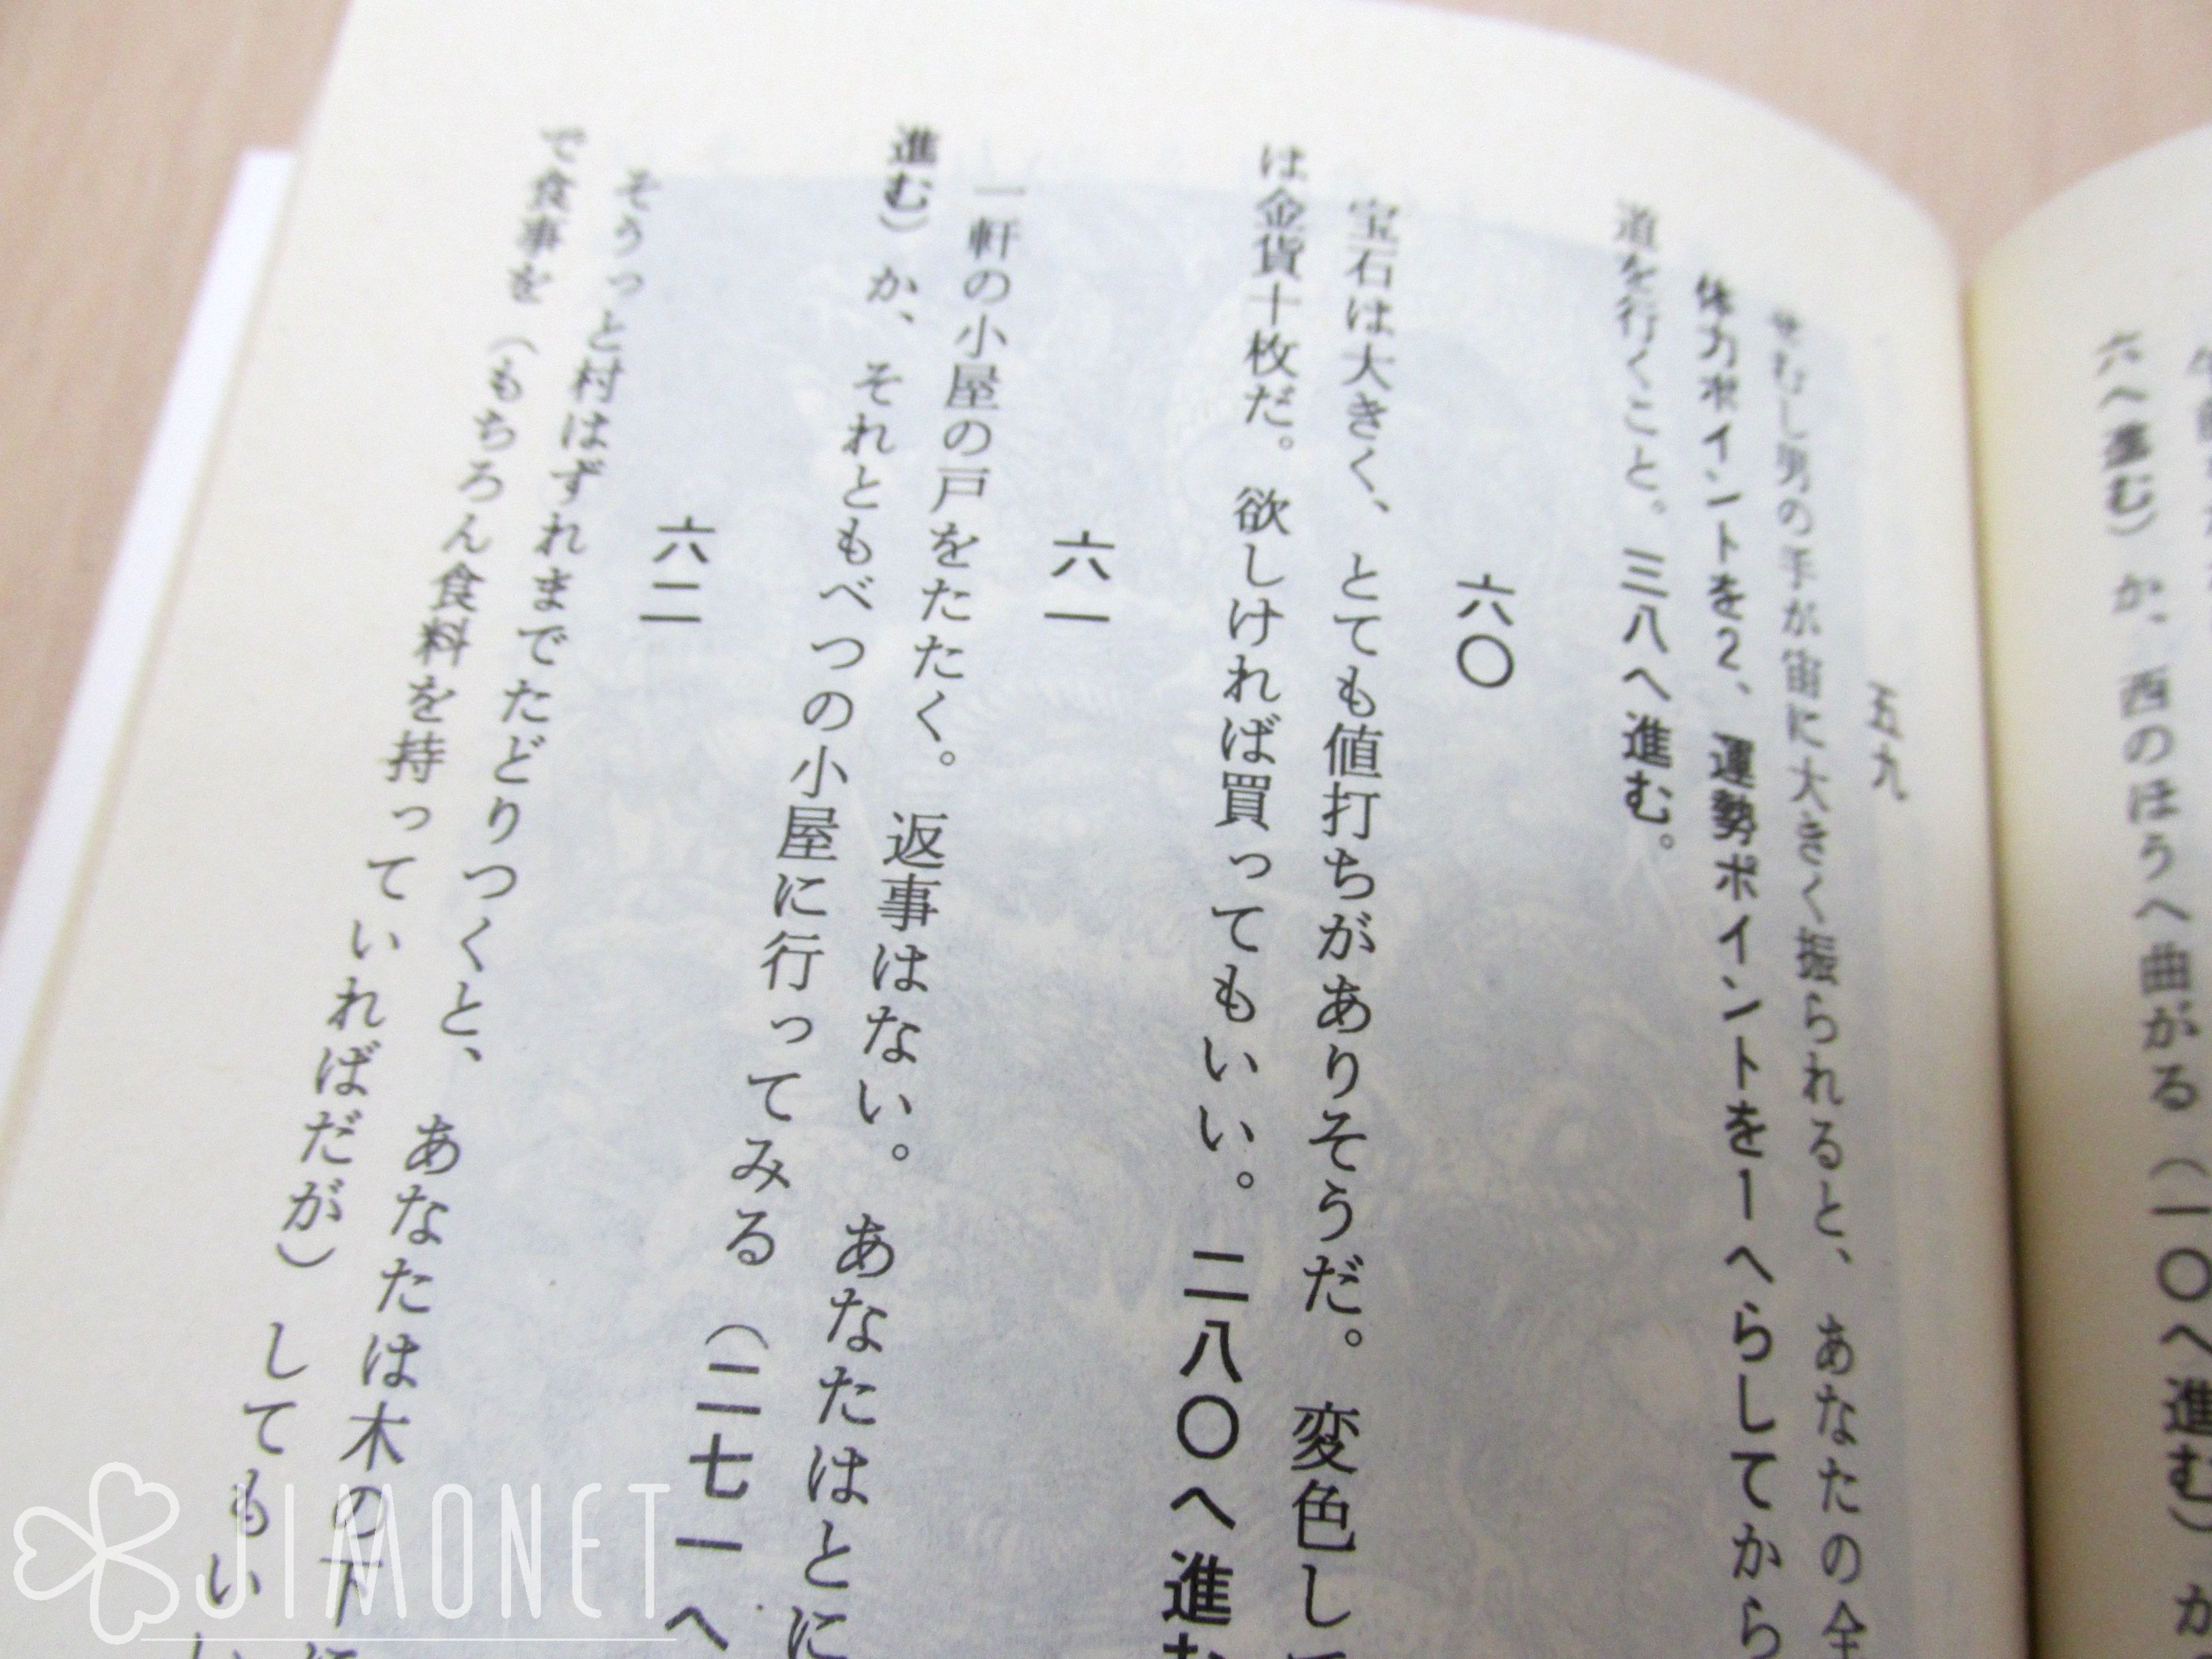 六へ進む）か、西のほうへ曲がる（一〇へ進む）か
五九
せむし男の手が宙に大きく振られると、あなたの全
体力ポイントを2、運勢ポイントを1へらしてから
道を行くこと。三八へ進む。
六〇
宝石は大きく、とても値打ちがありそうだ。変色し
は金貨十枚だ。欲しければ買ってもいい。二八〇へ進む
六一
一軒の小屋の戸をたたく。返事はない。あなたはとに
進む）か、それともべつの小屋に行ってみる（二七一へ
六二
そうっと村はずれまでたどりつくと、あなたは木の下に
で食事を（もちろん食料を持っていればだが）してもいい
JIMONET